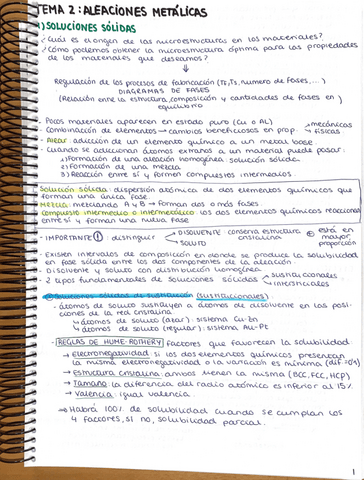 TEMA 2: ALEACIONES METÁLICAS
1) SOLUCIONES SÓLIDAS
¿Cuál es el origen de las microestructuras en los materiales?
¿Cómo podemos obtener la microestructura óptima para las propiedades
de los materiales que deseamos?
Regulación de los procesos de fabricación (Tª, Ts, número de fases, ...)
DIAGRAMAS DE FASES
(Relación entre la estructura, composición y cantidades de fases en
equilibrio)
- Pocos materiales aparecen en estado puro (Cu o AL)
- Combinación de elementos → cambios beneficiosos en prop. → mecánicas
→ físicas
- Alear: adicción de un elemento químico a un metal base.
- Cuando se adicionan átomos extraños a un material puede pasar:
1) Formación de una aleación homogénea: solución sólida
2) Formación de una mezcla
3) Reacción entre sí y formen compuestos intermedios
Solución sólida: dispersión atómica de dos elementos químicos que
forman una única fase.
Mezcla: mezclando A y B → forman dos o más fases
Compuesto intermedio o intermetálico: los dos elementos químicos reaccionan
entre sí y forman una nueva fase
- IMPORTANTE ! distinguir DISOLVENTE conserva estructura cristalina está en mayor proporción
SOLUTO
- Existen intervalos de composición en donde se produce la solubilidad
en fase sólida entre los dos componentes de la aleación.
- Disolvente y soluto con distribución homogénea
- 2 tipos fundamentales de soluciones sólidas → sustitucionales
→ intersticiales
Soluciones sólidas de sustitución (sustitucionales)
átomos de soluto sustituyen a átomos de disolvente en las posi-
ciones de la red cristalina
↳ átomos de soluto (azar): sistema Cu-Sn
↳ átomos de soluto (regular): sistema Au-Pt
- REGLAS DE HUME-ROTHERY factores que favorecen la solubilidad.
→ electronegatividad: si los dos elementos químicos presentan
la misma electronegatividad o la variación es mínima
→ Estructura cristalina: ambos tienen la misma (BCC, FCC, HCP)
→ Tamaño: la diferencia del radio atómico es inferior al 15%
→ Valencia: igual valencia.
→ Habrá 100% de solubilidad cuando se cumplan los
4 factores, si no, solubilidad parcial.
1